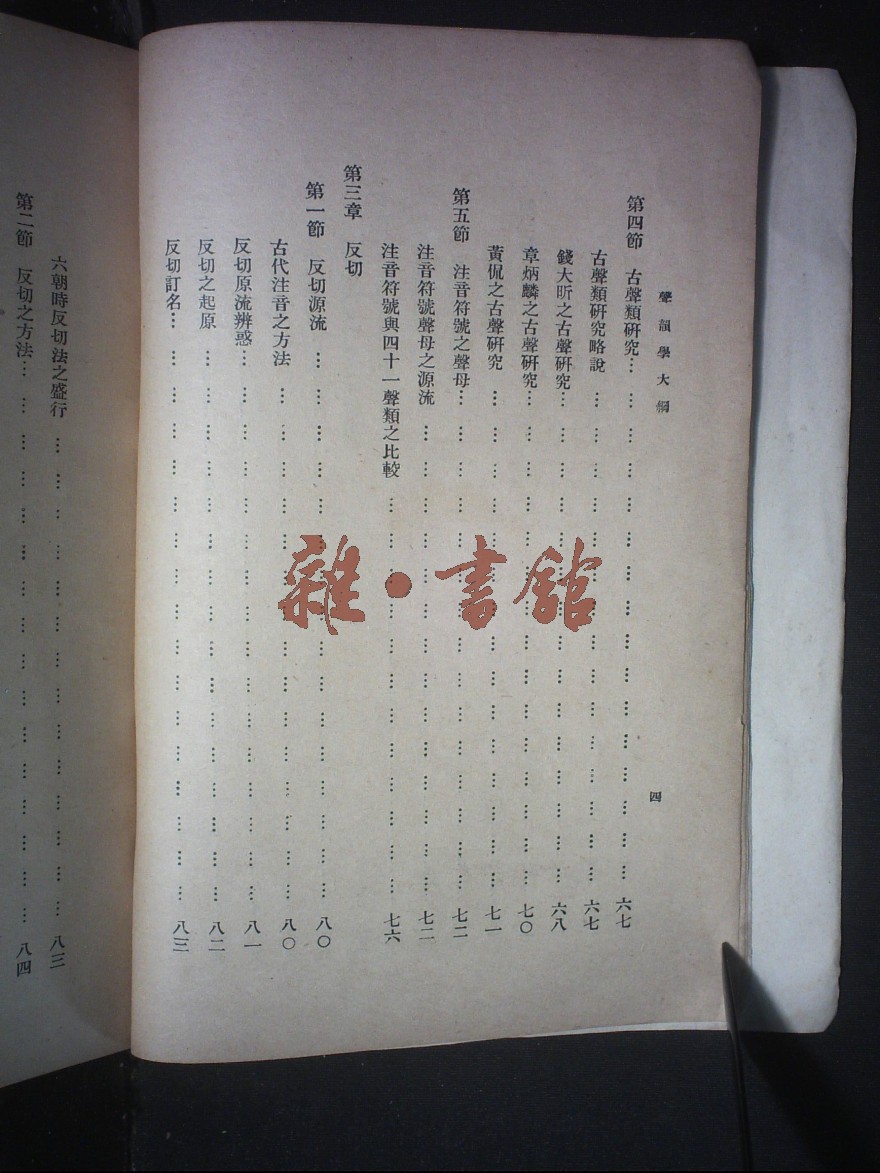 聲韻學大綱
四
第四節　古聲類研究… … … … … … … … … … … … … … … 六七
古聲類研究略說 … … … … … … … … … … … … … … 六七
錢大昕之古聲研究… … … … … … … … … … … … … … 六八
章炳麟之古聲研究… … … … … … … … … … … … … … 七〇
黃侃之古聲研究 … … … … … … … … … … … … … … 七一
第五節　注音符號之聲母… … … … … … … … … … … … … … 七二
注音符號聲母之源流 … … … … … … … … … … … … … 七二
注音符號與四十一聲類之比較 … … … … … … … … … … … 七六
第三章　反切
第一節　反切源流 … … … … … … … … … … … … … … … 八〇
古代注音之方法 … … … … … … … … … … … … … … 八〇
反切原流辨惑… … … … … … … … … … … … … … … 八一
反切之起原 … … … … … … … … … … … … … … … 八二
反切訂名… … … … … … … … … … … … … … … … 八三
六朝時反切法之盛行 … … … … … … … … … … … … … 八三
第二節　反切之方法… … … … … … … … … … … … … … … 八四
雜·書館